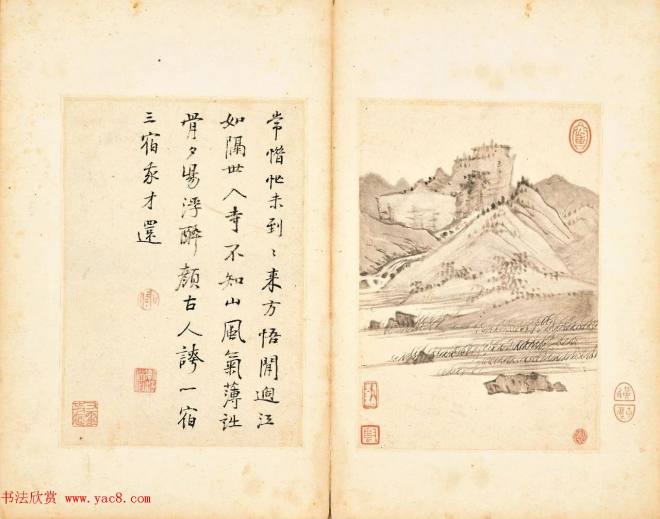 常惜忙未到〻来方悟閒過江
如隔世入寺不知山風氣薄詩
骨夕陽浮醉顏古人誇一宿
三宿我才還
书法欣赏 www.yac8.com